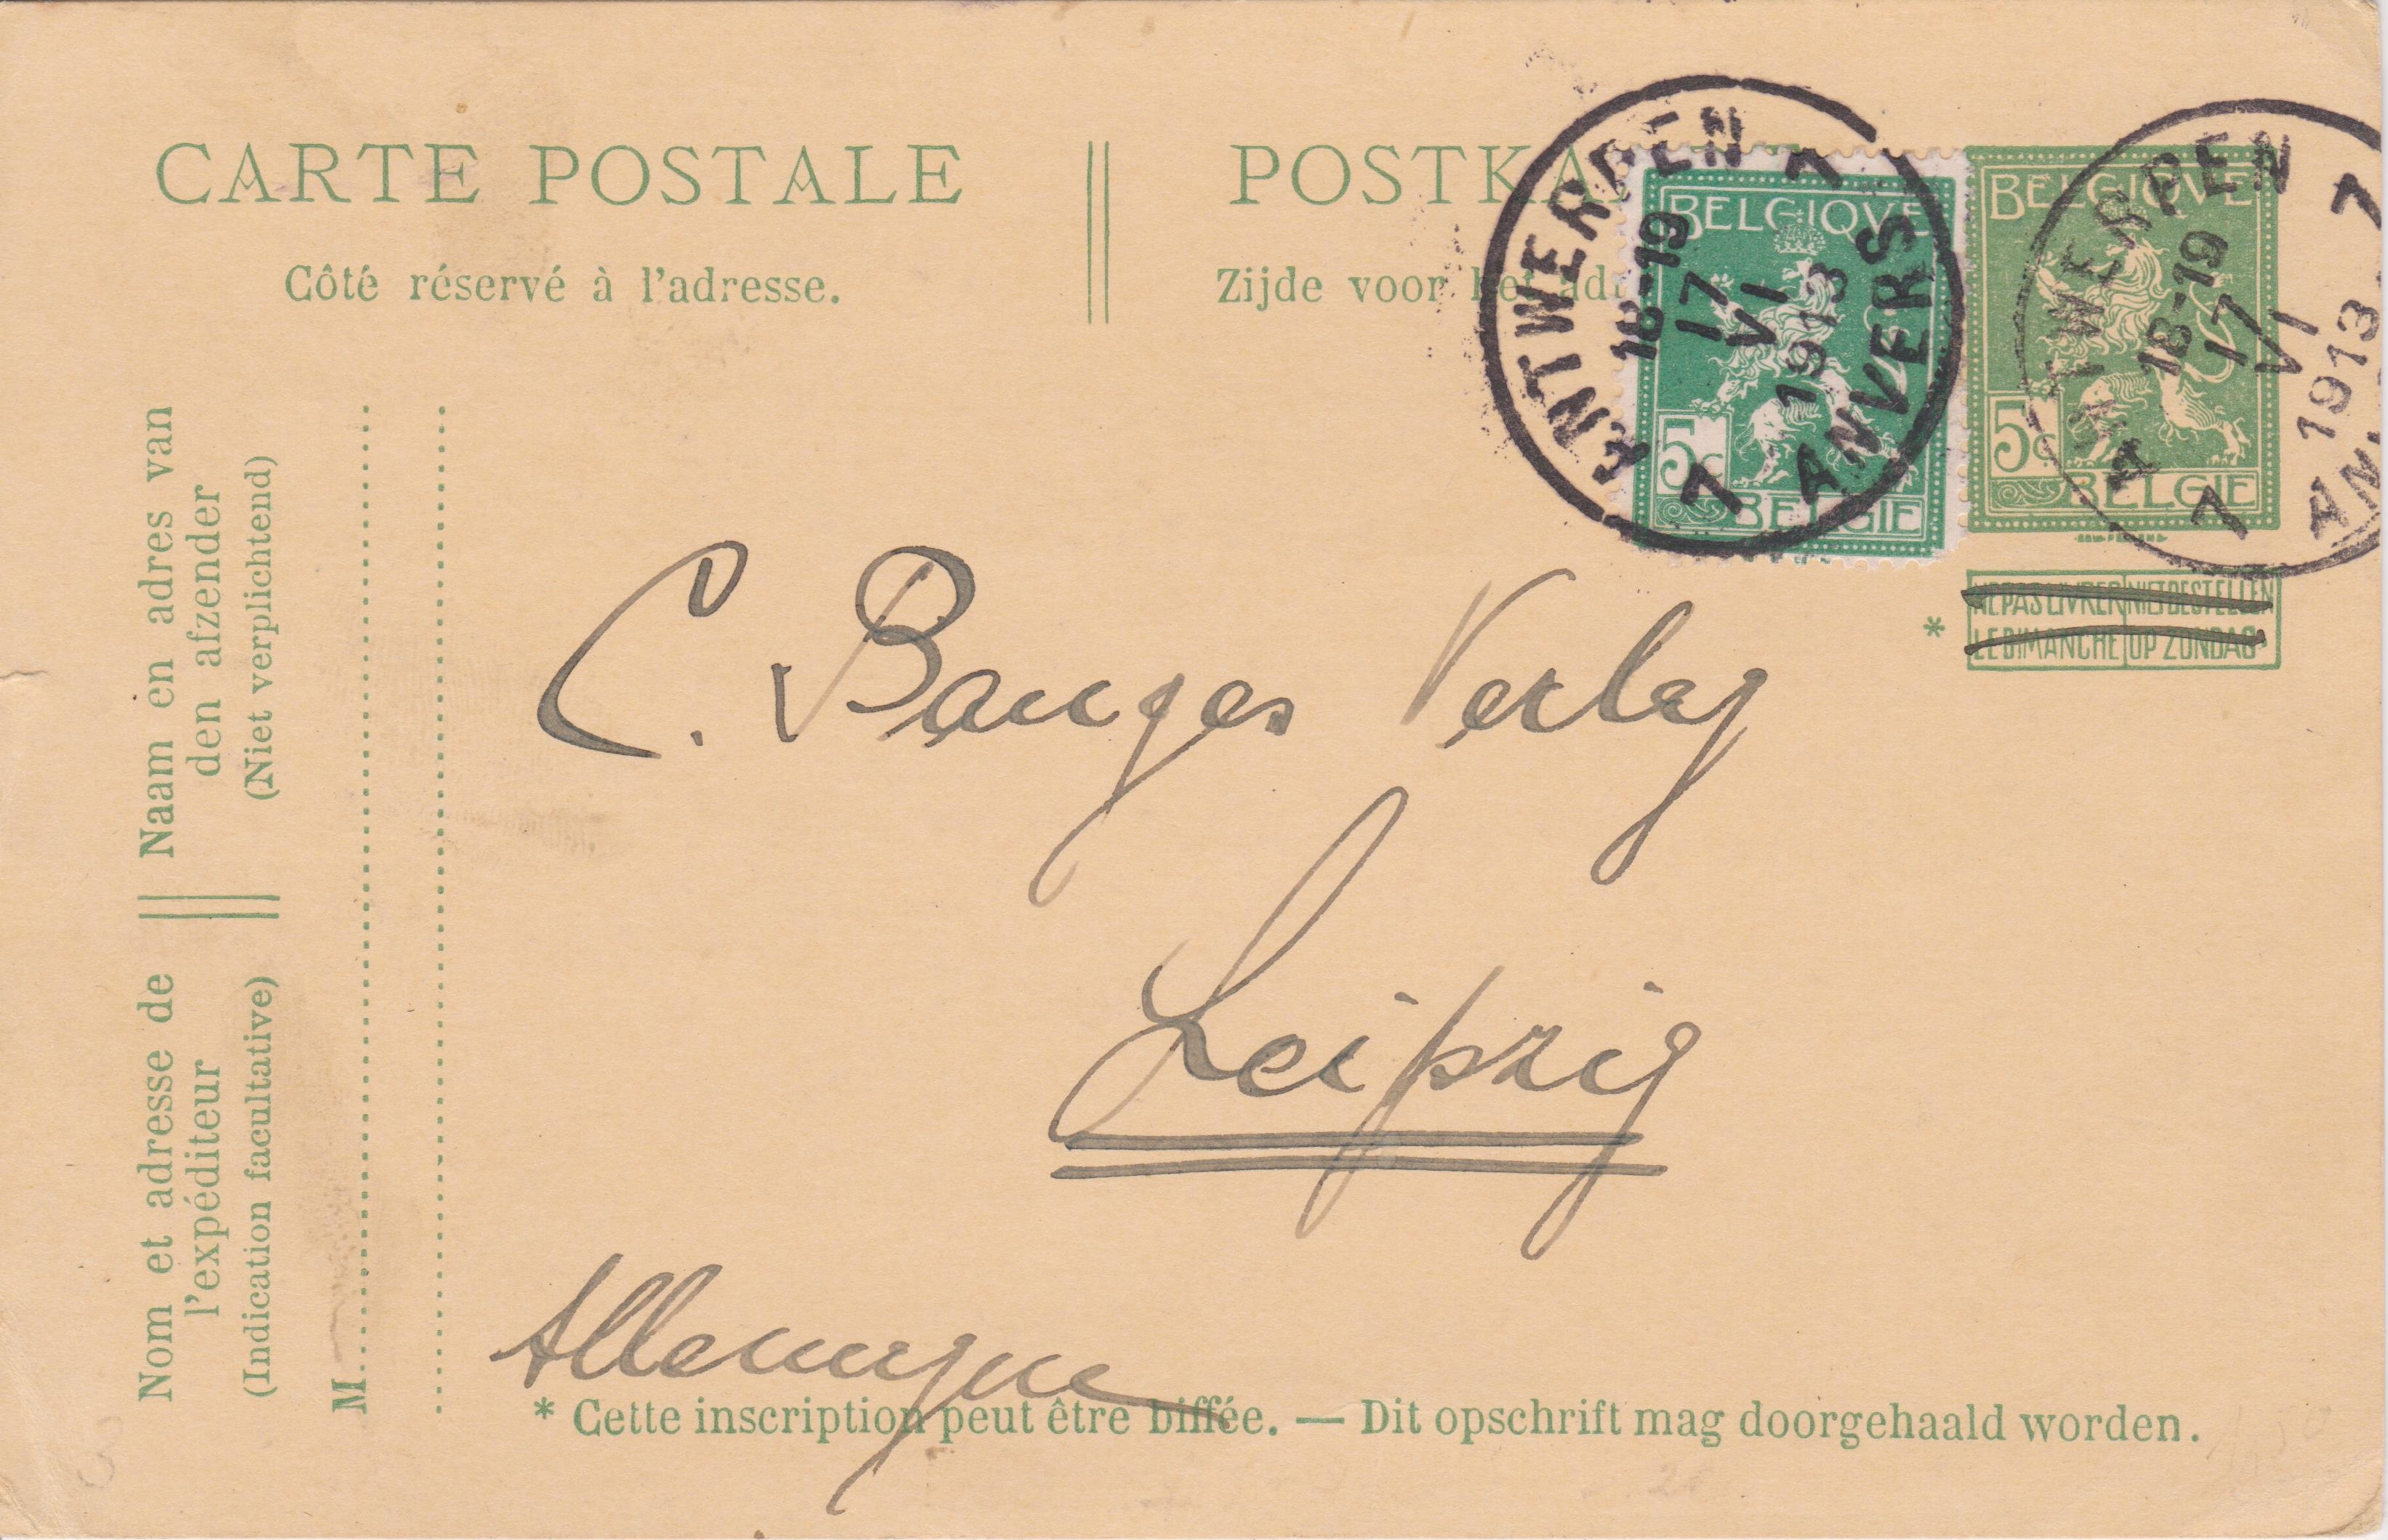 CARTE POSTALE
POSTKA
Côté réservé à l'adresse.
Zijde voor het ad
BELGIQVE
5c
BELGIE
ANTWERPEN 7
18-19
17
VI
1913
7 ANVERS
BELGIQVE
5c
BELGIE
ANTWERPEN 7
18-19
17
VI
1913
7 AN
* NE PAS LIVRER NIET BESTELLEN
LE DIMANCHE OP ZONDAG
Naam en adres van
den afzender
(Niet verplichtend)
Nom et adresse de
l'expéditeur
(Indication facultative)
M
C. Banges Verlag
Leipzig
Allemagne
* Cette inscription peut être biffée. — Dit opschrift mag doorgehaald worden.